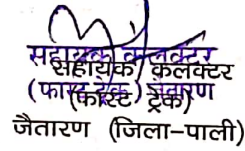 सहायक कलक्टर
(फास्ट ट्रेक) जैतारण
सहायक कलक्टर
(फास्ट ट्रेक)
जैतारण (जिला-पाली)